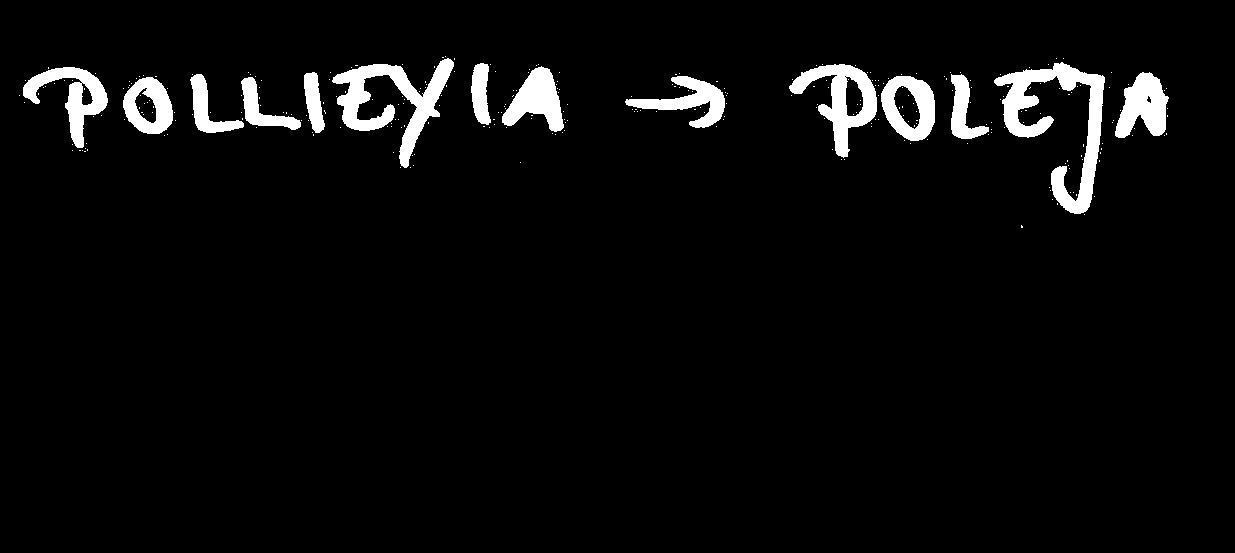 POLLIEYIA → POLEJA